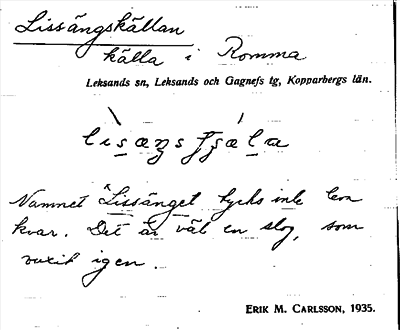 Lissängskällan
källa i Romma
Leksands sn, Leksands och Gagnefs tg, Kopparbergs län.
Namnet Lissänget tycks inte leva
kvar. Det är väl en slog, som
vuxit igen.
ERIK M. CARLSSON, 1935.